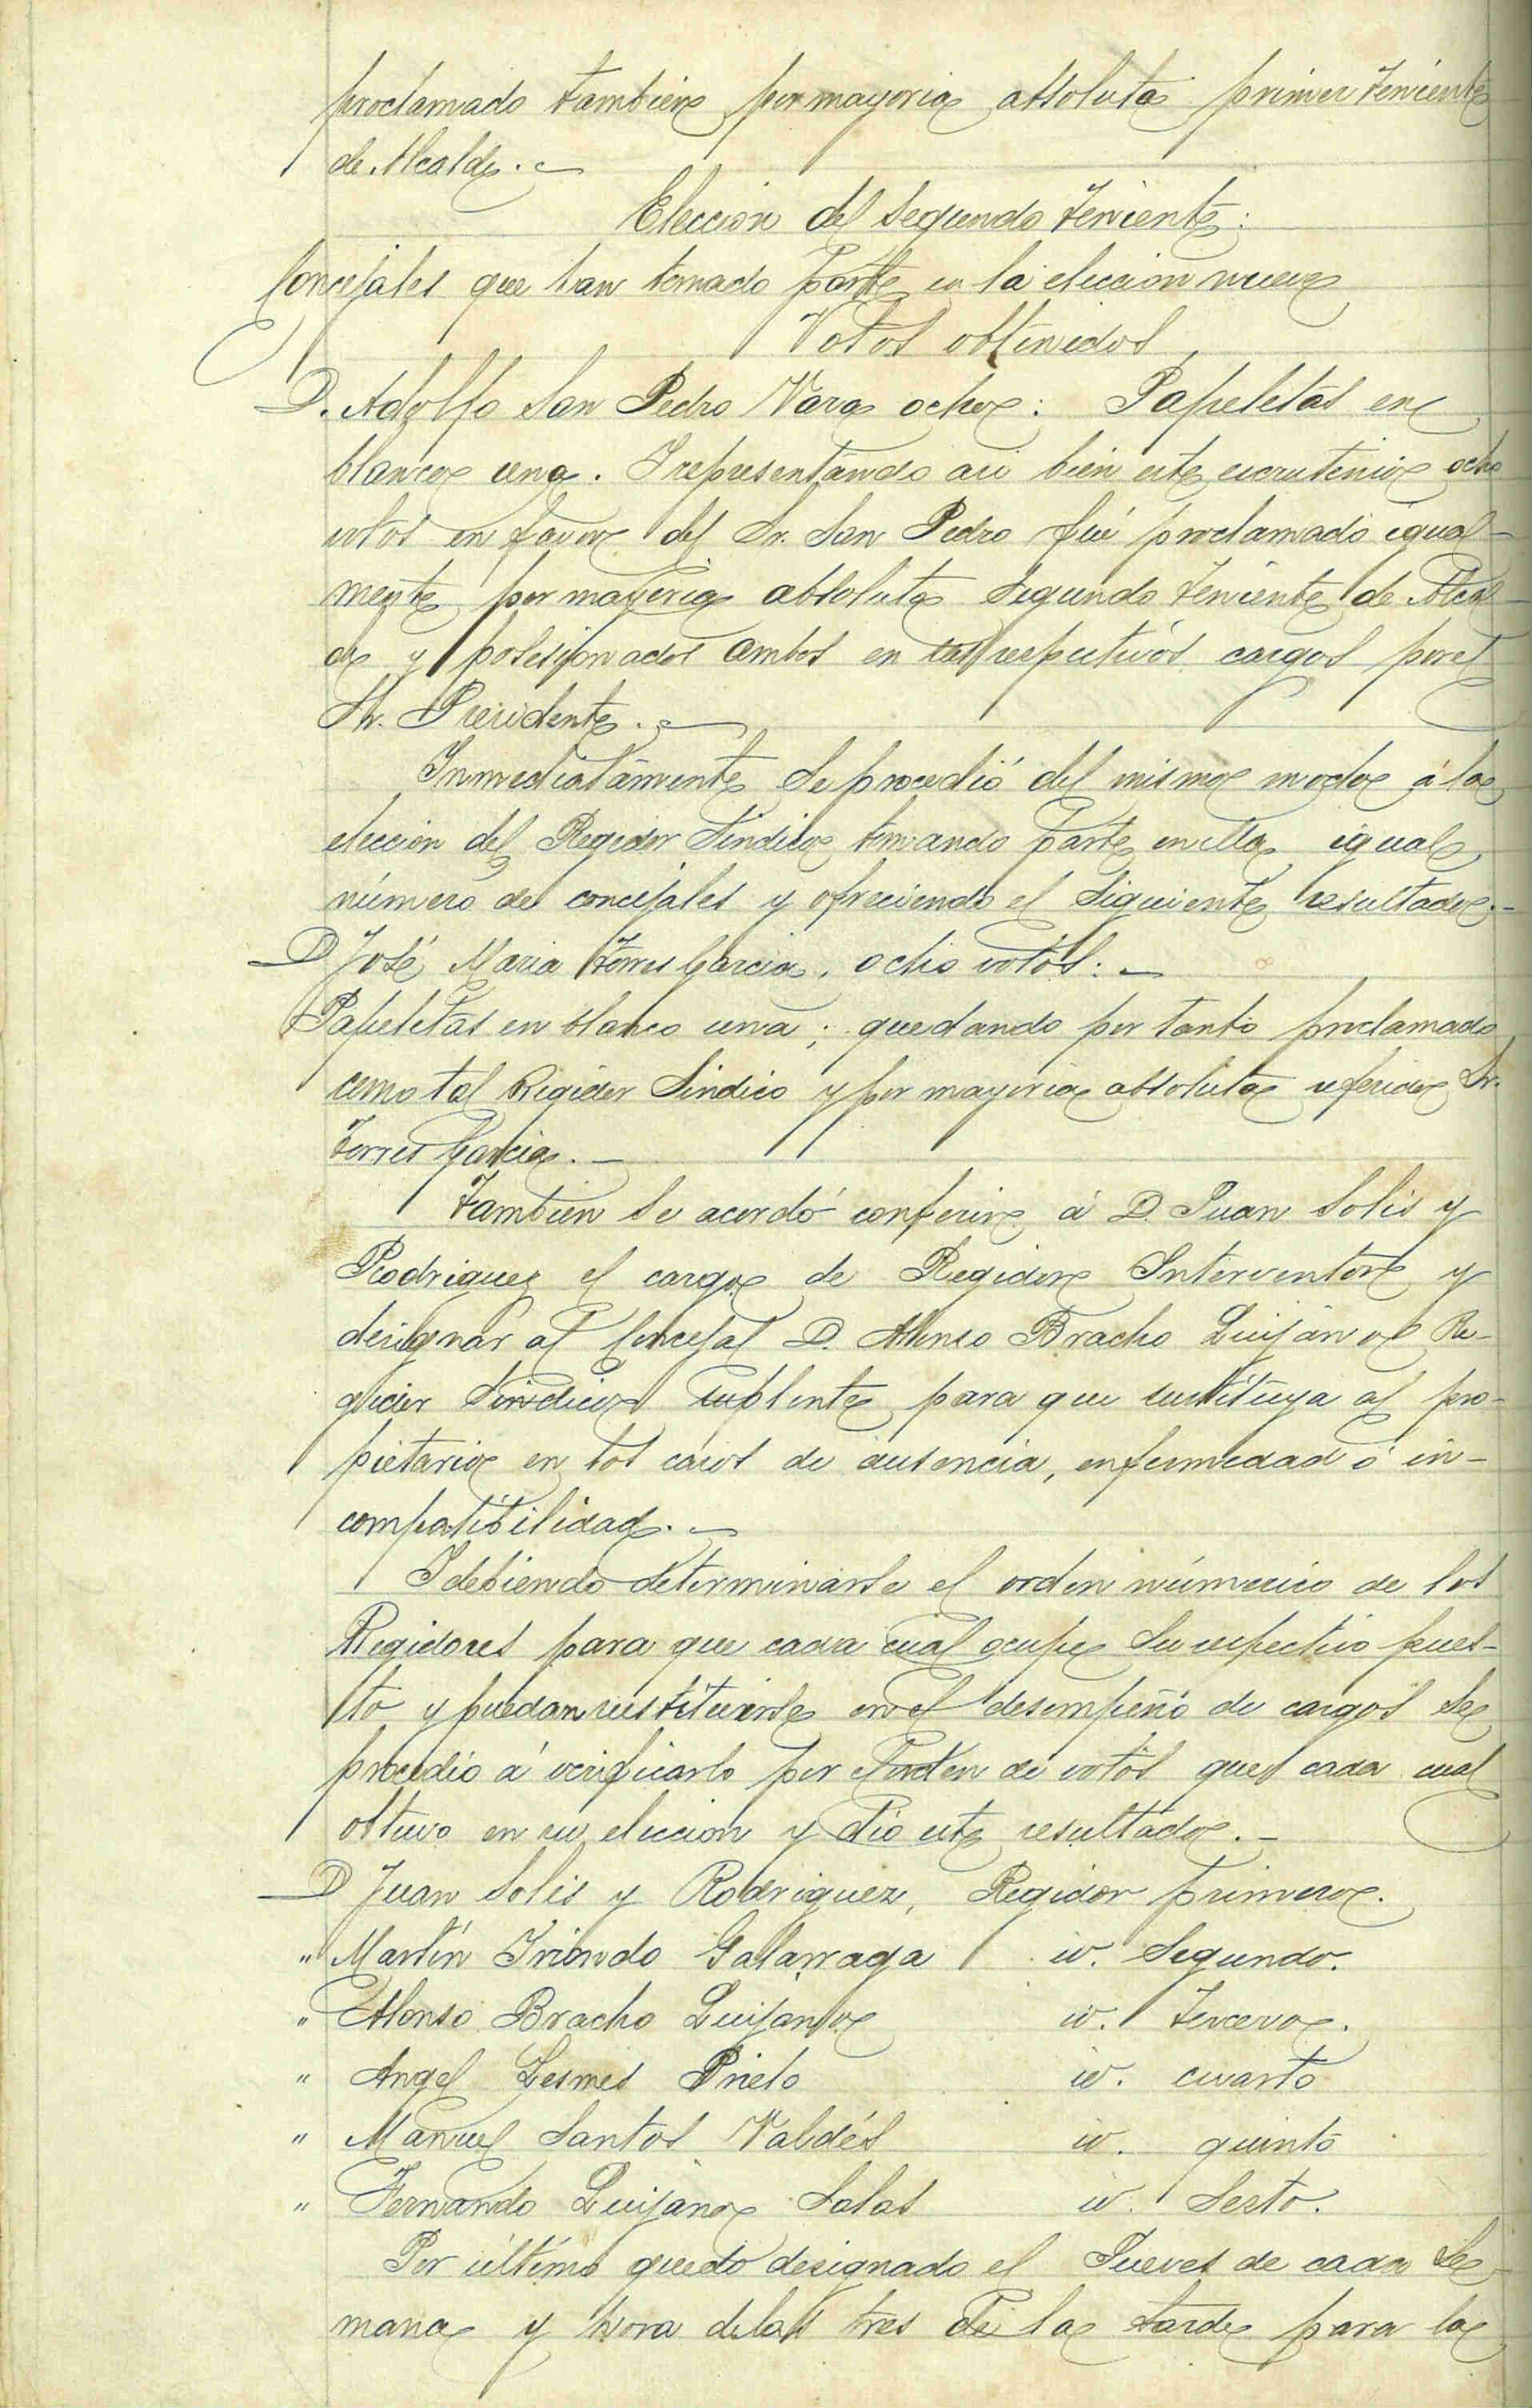 proclamado tambien por mayoria absoluta primer teniente
de Alcalde. —
Eleccion del Segundo teniente:
Concejales que han tomado parte en la eleccion nueve
Votos obtenidos
D. Adolfo San Pedro Vara ocho: Papeletas en
blanco una. I representando asi bien este escrutinio ocho
votos en favor del Sr. San Pedro fué proclamado igual-
mente por mayoria absoluta Segundo teniente de Alcal-
de y posesionados ambos en sus respectivos cargos por el
Sr. Presidente. —
Inmediatamente se procedió del mismo modo á la
eleccion del Regidor Sindico tomando parte en ella igual
número de concejales y ofreciendo el Siguiente resultado. —
D José Maria Torres Garcia, ocho votos: —
Papeletas en blanco una; quedando por tanto proclamado
como tal Regidor Sindico y por mayoria absoluta referido Sr.
Torres Garcia. —
Tambien se acordó conferir á D. Juan Solis y
Rodriguez el cargo de Regidor Interventor y
designar al Concejal D. Alonso Bracho Quijano Re-
gidor Sindico Suplente para que sustituya al pro-
pietario en los casos de ausencia, enfermedad ó in-
compatibilidad. —
I debiendo determinarse el orden númerico de los
Regidores para que cada cual ocupe su respectivo pues-
to y puedan sustituirse en el desempeño de cargos se
procedió á verificarlo por el orden de votos que cada cual
obtuvo en su eleccion y dio este resultado. —
D Juan Solis y Rodriguez, Regidor primero.
" Martin Iriondo Galarraga id. Segundo.
" Alonso Bracho Quijano id. Tercero.
" Angel Lesmes Prieto id. cuarto
" Manuel Santos Valdés id. quinto
" Fernando Quijano Salas id. Sesto.
Por último quedó designado el Jueves de cada Se-
mana y hora de las tres de la tarde para la